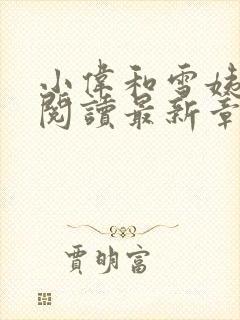 小偉和雪姨
閱讀最新章
賈明富